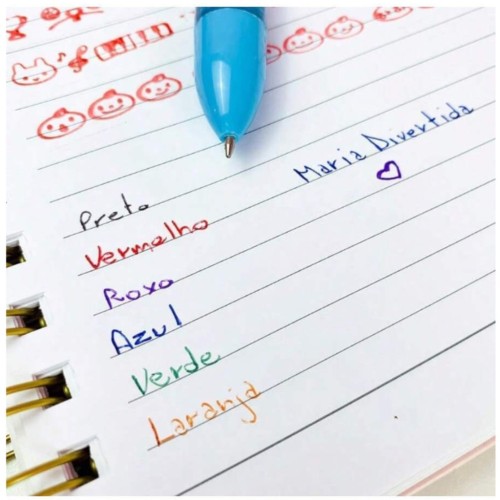 Maria Divertida
Preto
Vermelho
Roxo
Azul
Verde
Laranja